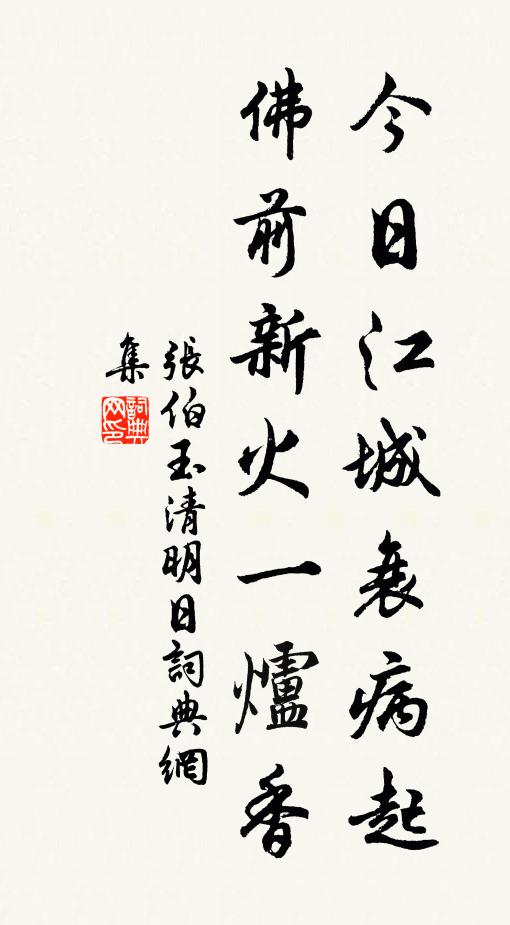 今日江城衰病起
佛前新火一爐香
張伯玉清明日詞典網
集
詞典网印